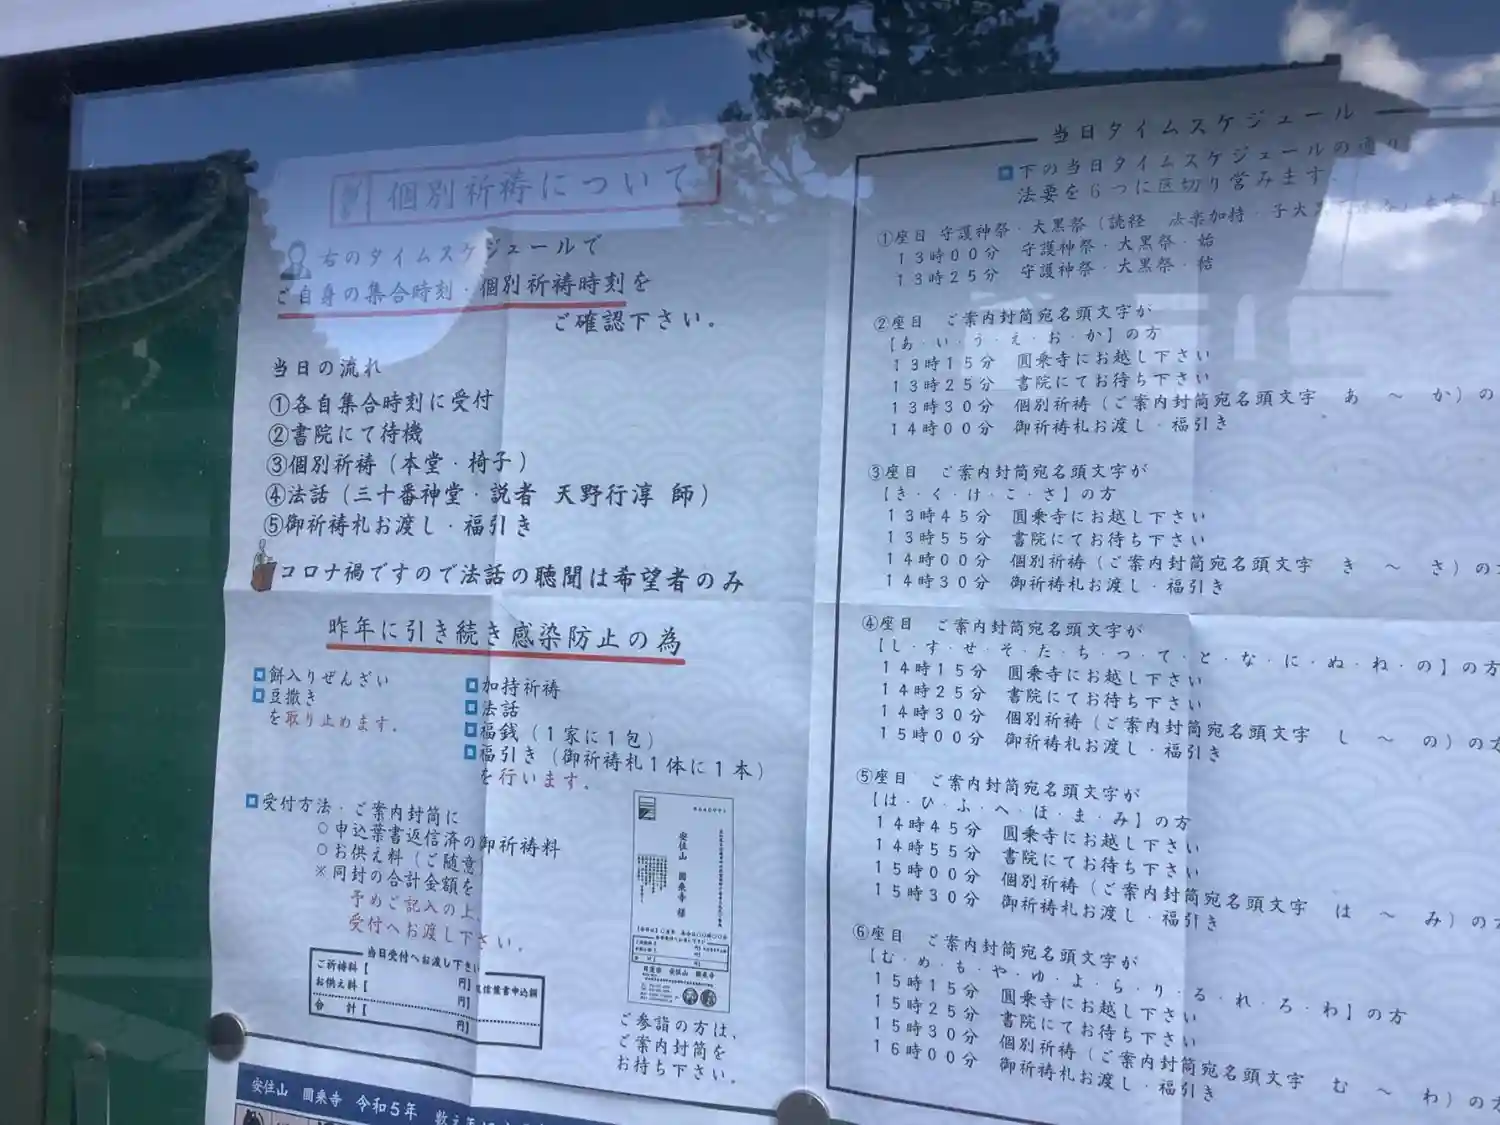 個別祈祷について
右のタイムスケジュールで
ご自身の集合時刻・個別祈祷時刻を
ご確認下さい。
当日の流れ
①各自集合時刻に受付
②書院にて待機
③個別祈祷（本堂・椅子）
④法話（三十番神堂・説者 天野行淳 師）
⑤御祈祷札お渡し・福引き
コロナ禍ですので法話の聴聞は希望者のみ
昨年に引き続き感染防止の為
餅入りぜんざい
豆撒き
を取り止めます。
加持祈祷
法話
福銭（１家に１包）
福引き（御祈祷札１体に１本）
を行います。
受付方法・ご案内封筒に
○申込葉書返信済の御祈祷料
○お供え料（ご随意
※同封の合計金額を
予めご記入の上、
受付へお渡し下さい。
当日受付へお渡し下さい
ご祈祷料【 円】
お供え料【 円】
合 計【 円】
信葉書申込額
安住山 圓乗寺 様
ご参詣の方は、
ご案内封筒を
お持ち下さい。
安住山 圓乗寺 令和５年
当日タイムスケジュール
下の当日タイムスケジュールの通り
法要を６つに区切り営みます
①座目 守護神祭・大黒祭（読経 法楽加持・
１３時００分 守護神祭・大黒祭・始
１３時２５分 守護神祭・大黒祭・結
②座目 ご案内封筒宛名頭文字が
【あ・い・う・え・お・か】の方
１３時１５分 圓乗寺にお越し下さい
１３時２５分 書院にてお待ち下さい
１３時３０分 個別祈祷（ご案内封筒宛名頭文字 あ ～ か）の
１４時００分 御祈祷札お渡し・福引き
③座目 ご案内封筒宛名頭文字が
【き・く・け・こ・さ】の方
１３時４５分 圓乗寺にお越し下さい
１３時５５分 書院にてお待ち下さい
１４時００分 個別祈祷（ご案内封筒宛名頭文字 き ～ さ）の
１４時３０分 御祈祷札お渡し・福引き
④座目 ご案内封筒宛名頭文字が
【し・す・せ・そ・た・ち・つ・て・と・な・に・ぬ・ね・の】の方
１４時１５分 圓乗寺にお越し下さい
１４時２５分 書院にてお待ち下さい
１４時３０分 個別祈祷（ご案内封筒宛名頭文字 し ～ の）の
１５時００分 御祈祷札お渡し・福引き
⑤座目 ご案内封筒宛名頭文字が
【は・ひ・ふ・へ・ほ・ま・み】の方
１４時４５分 圓乗寺にお越し下さい
１４時５５分 書院にてお待ち下さい
１５時００分 個別祈祷（ご案内封筒宛名頭文字 は ～ み）の
１５時３０分 御祈祷札お渡し・福引き
⑥座目 ご案内封筒宛名頭文字が
【む・め・も・や・ゆ・よ・ら・り・る・れ・ろ・わ】の方
１５時１５分 圓乗寺にお越し下さい
１５時２５分 書院にてお待ち下さい
１５時３０分 個別祈祷（ご案内封筒宛名頭文字 む ～ わ）の
１６時００分 御祈祷札お渡し・福引き